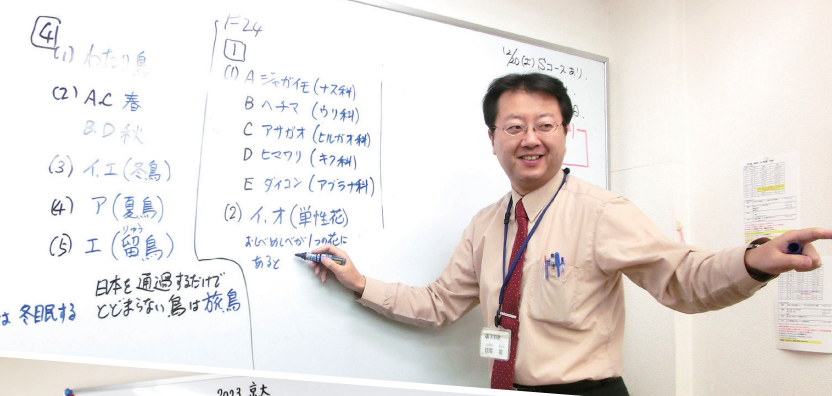 4
(1) わたり鳥
(2) A.C 春
B.D 秋
(3) イ.エ(冬鳥)
(4) ア(夏鳥)
りゅう
(5) エ(留鳥)
日本を通過するだけで
とどまらない鳥は旅鳥
は冬眠する
F-24
1
(1) A ジャガイモ(ナス科)
B ヘチマ (ウリ科)
C アサガオ(ヒルガオ科)
D ヒマワリ (キク科)
E ダイコン(アブラナ科)
(2) イ.オ(単性花)
おしべめしべが1つの花に
あると
12/20(土) Sコースあり.
2023 京大